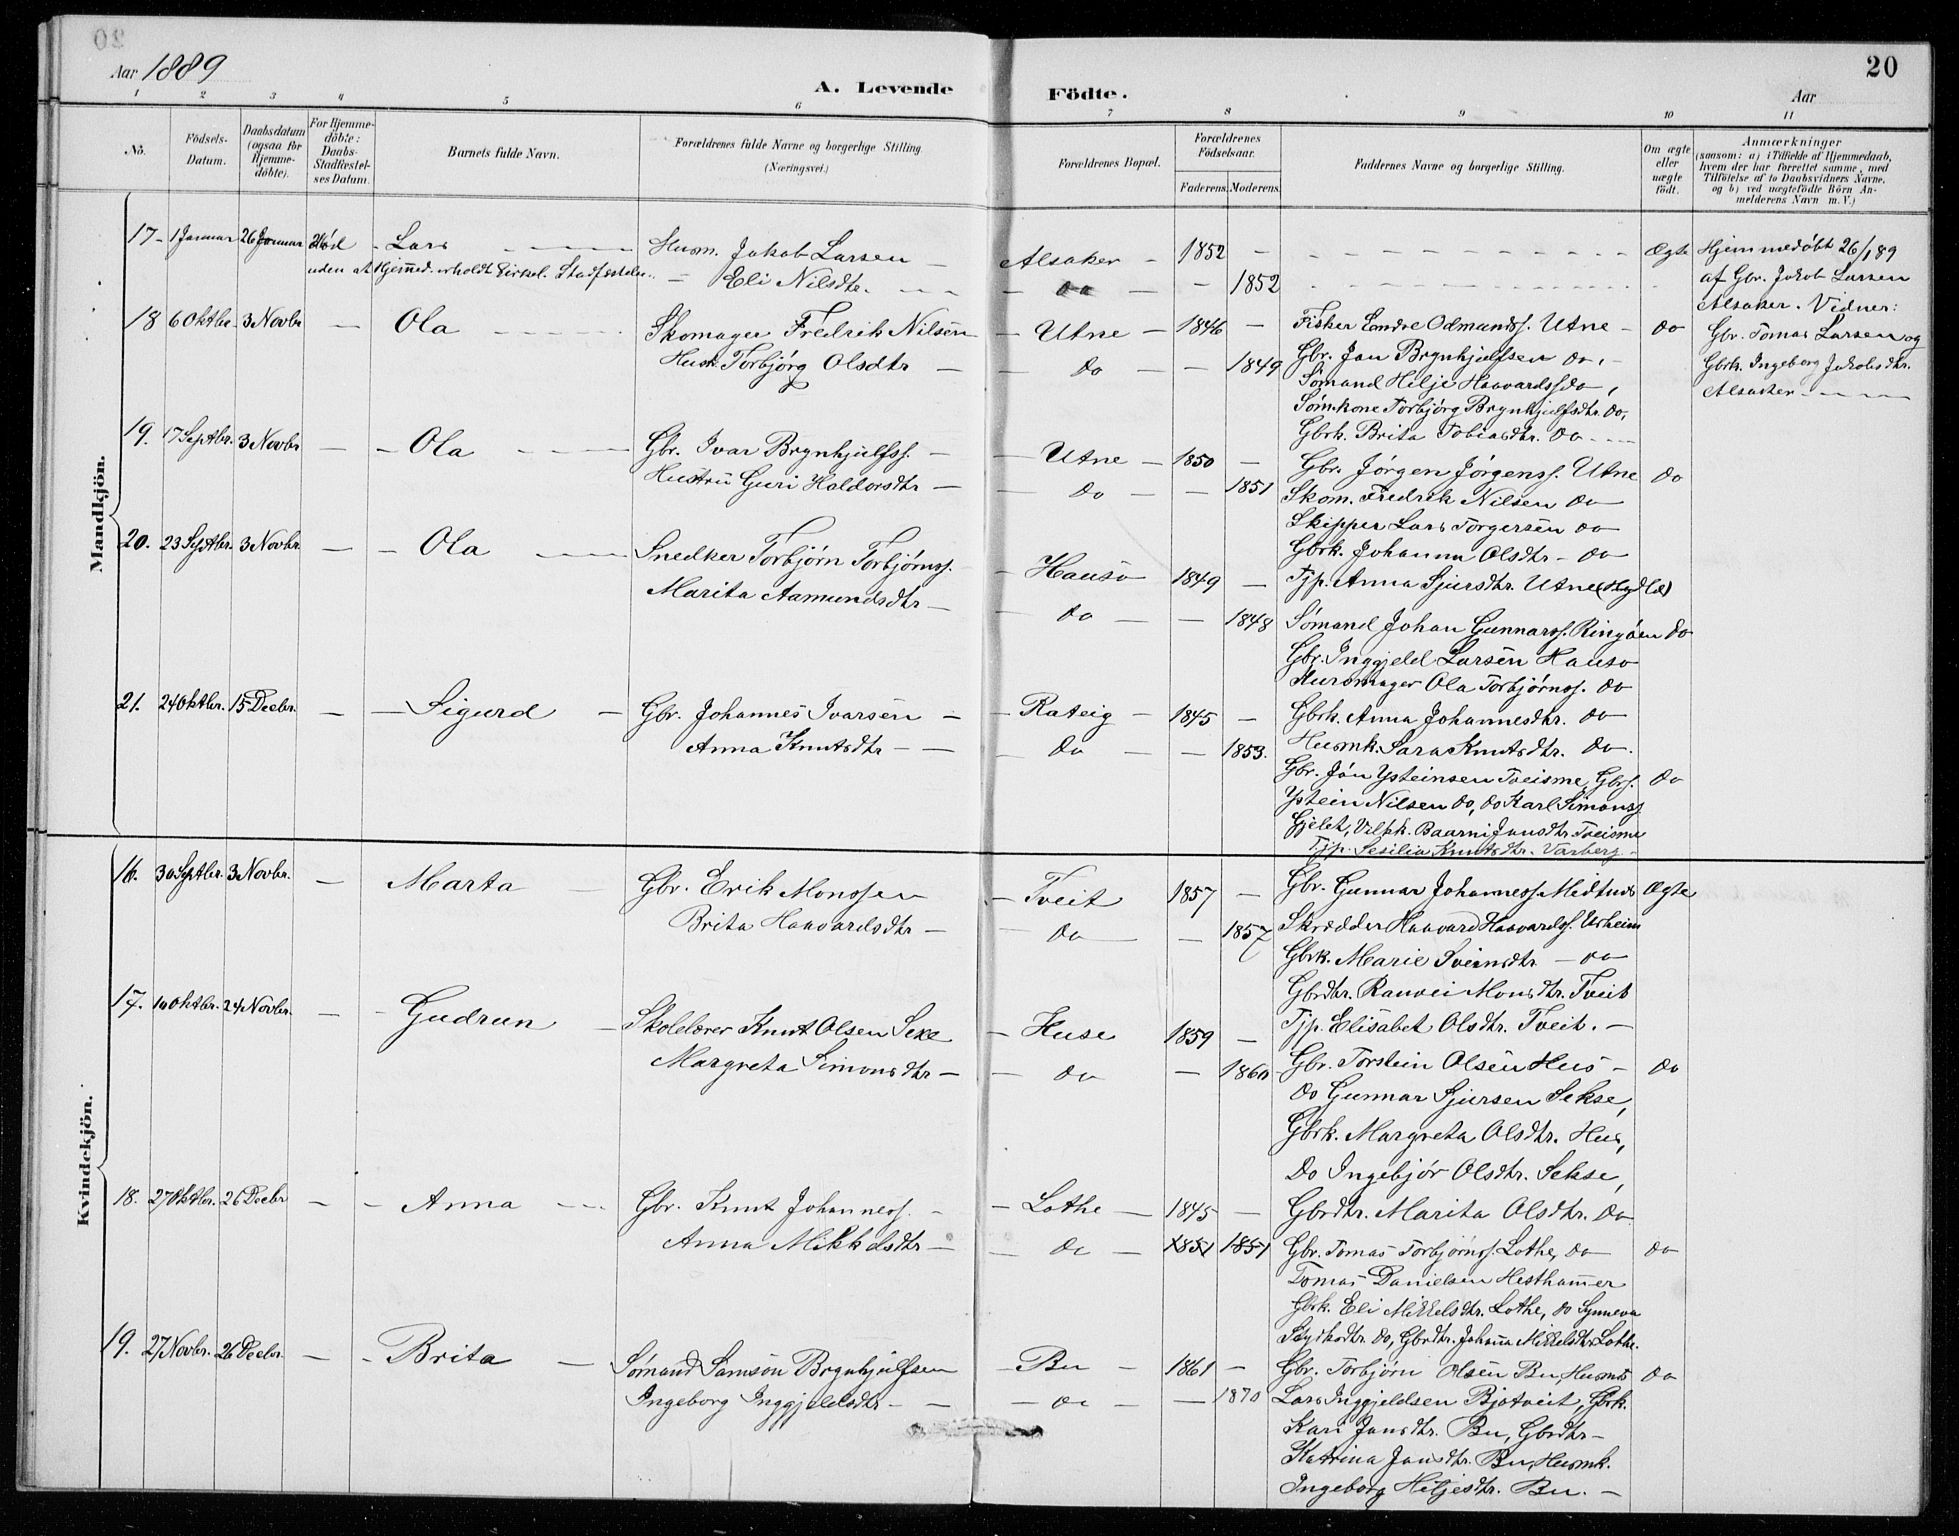 20
Aar 1889
A. Levende Födte.
Aar
1 2 3 4 5 6 7 8 9 10 11
No.
Födsels-Datum.
Daabsdatum (ogsaa for Hjemme-döbte).
For Hjemme-döbte: Daabs-Stadfæstel-ses Datum.
Barnets fulde Navn.
Forældrenes fulde Navne og borgerlige Stilling (Næringsvei.)
Forældrenes Bopæl.
Forældrenes Födselsaar.
Faderens. Moderens.
Faddernes Navne og borgerlige Stilling.
Om ægte eller uægte födt.
Anmærkninger
(saasom: a) i Tilfælde af Hjemmedaab,
hvem der har forrettet samme, med
Tilföielse af to Daabsvidners Navne,
og b) ved uægtefödte Börn An-
melderens Navn m. V.)
Mandkjön.
17 - 1 Januar 26 Januar - Lars - Husm. Jakob Larsen - Alsaker - 1852 - Ægte Hjemmedøbt 26/1 89
uden at Hjemmed. erholdt Kirkel. Stadfæstelse. - Eli Nilsdtr. - do - - 1852 af Gbr. Jakob Larsen
Alsaker. Vidner:
18 6 Oktbr. 3 Novbr - Ola - Skomager Fredrik Nilsen - Utne - 1846 - Fisker Endre Odmundss. Utne - do Gbr. Tomas Larsen og
Hustr. Torbjørg Olsdtr - do - - 1849 Gbr. Jon Brynhjulfsen do, - Gbrk. Ingeborg Jakobsdtr.
Sømand Hilje Haavardss do, Alsaker
Sømkone Torbjørg Brynhjulfsdtr. do,
Gbrk. Brita Tobiasdtr. do
19. 17 Septbr. 3 Novbr - Ola - Gbr. Ivar Brynhjulfss. - Utne - 1850 - Gbr. Jørgen Jørgenss. Utne do
Hustru Guri Haldorsdtr - do - - 1851 Skom. Fredrik Nilsen do
Skipper Lars Torgersen do
Gbrk. Johanna Olsdtr - do
20. 23 Septbr. 3 Novbr. - Ola - Snedker Torbjørn Torbjørnss. - Hauso 1849 - Tjp. Anna Sjursdtr. Utne
Marita Aamundsdtr - do - - 1848 Sømand Johan Gunnarss. Ringøen do
Gbr. Inggjeld Larsen Hauso
Murermager Ola Torbjørnss. do
21. 24 Oktbr. 15 Decbr. - Sigurd - Gbr. Johannes Ivarsen - Rateig - 1845 - Gbrk. Anna Johannesdtr. do
Anna Knutsdtr - do - - 1853. Husmk. Sara Knutsdtr. do.
Gbr. Jon Ysteinsen Tveisme, Gbrs. do
Ystein Nilsen do, do Karl Simonss
Gjelet, Baarni Jonsdtr. Tveisme
Tjp. Sesilia Knutsdtr. Varberg
Kvindekjön.
16. 30 Septbr. 3 Novbr. - Marta - Gbr. Erik Monssen - Tveit 1857 - Gbr. Gunnar Johanness. Midtnes Ægte
Brita Haavardsdtr - do - 1857 Skrædder Haavard Haavardss. Urheim
Gbrk. Marie Sveinsdtr - do
Gbrdtr. Ranvei Monsdtr. Tveit
17. 10 Oktbr. 24 Novbr. - Gudrun - Skolelærer Knut Olsen Sexe - Huse 1859 - Tjp. Elisabet Olsdtr. Tveit. -
Margreta Simonsdtr - do - 1860 Gbr. Torstein Olsen Hus - do
do Gunnar Sjursen Sekse,
Gbrk. Margreta Olsdtr. Hus,
Do Ingebjør Olsdtr. Sekse,
18. 27 Oktbr. 26 Decbr - Anna - Gbr. Knut Johanness. - Lothe - 1845 - Gbrdtr. Marita Olsdtr. do
Anna Mikkelsdtr - do - 1851 1851 Gbr. Tomas Torbjørnss. Lothe, do do
Tomas Danielsen Hesthammer
Gbrk. Eli Mikkelsdtr. Lothe, do Synneva
do, Gbrdtr. Johanna Mikkelsdtr Lothe.
19. 27 Novbr. 26 Decbr. - Brita - Sømand Samson Brynhjulfsen - Bu - 1861 - Gbr. Torbjørn Olsen Bu, Husmd do
Ingeborg Inggjeldsdtr - do - 1870 Lars Inggjeldsen Bjotveit, Gbrk.
Kari Jonsdtr. Bu, Gbrdtr -
Katrina Jonsdtr. Bu, Husmk.
Ingeborg Hiljesdtr. Bu. -